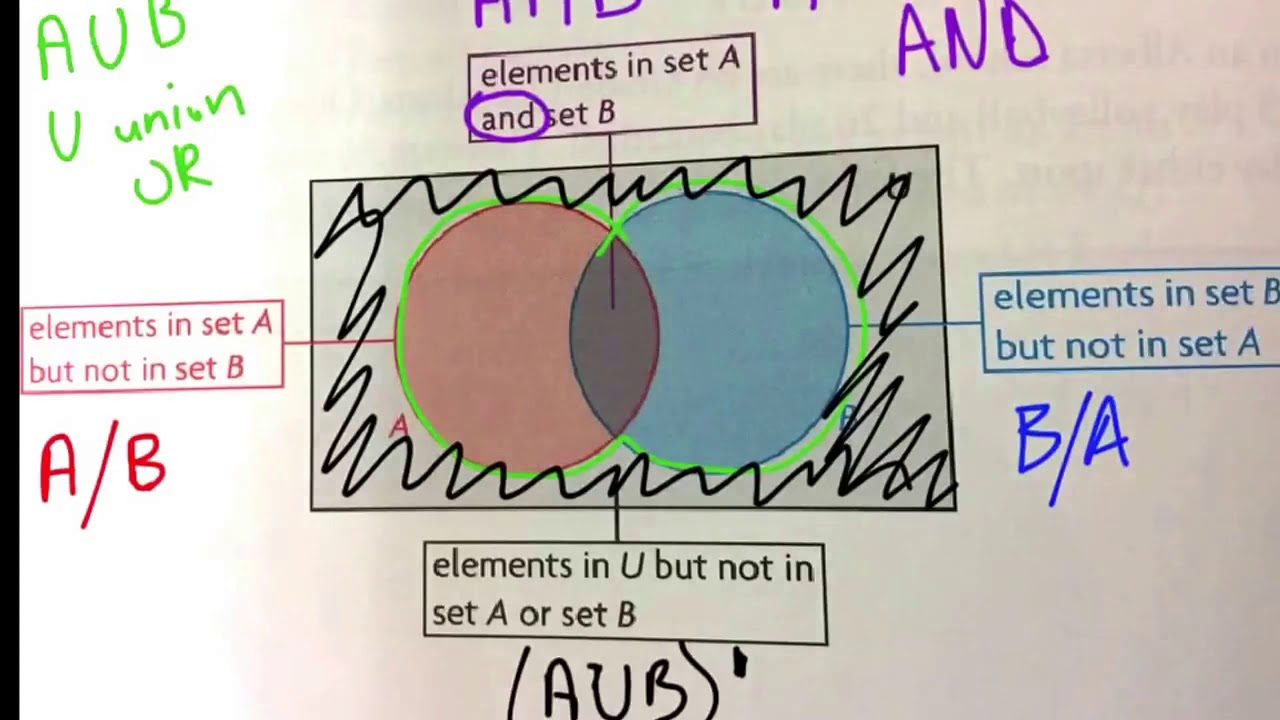 A U B
U union
OR
AND
elements in set A
and set B
elements in set A
but not in set B
A/B
elements in set B
but not in set A
B/A
A
B
elements in U but not in
set A or set B
(AUB)'